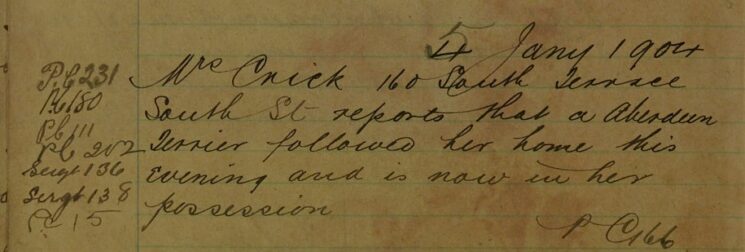 5
4 Jany 1904
P.C 231
Mrs Crick 160 South Terrace
South St reports that a Aberdeen
Pc 111
Pc 202
Terrier followed her home this
Sergt 136
evening and is now in her
Sergt 138
possession
Pc 15
P C 166